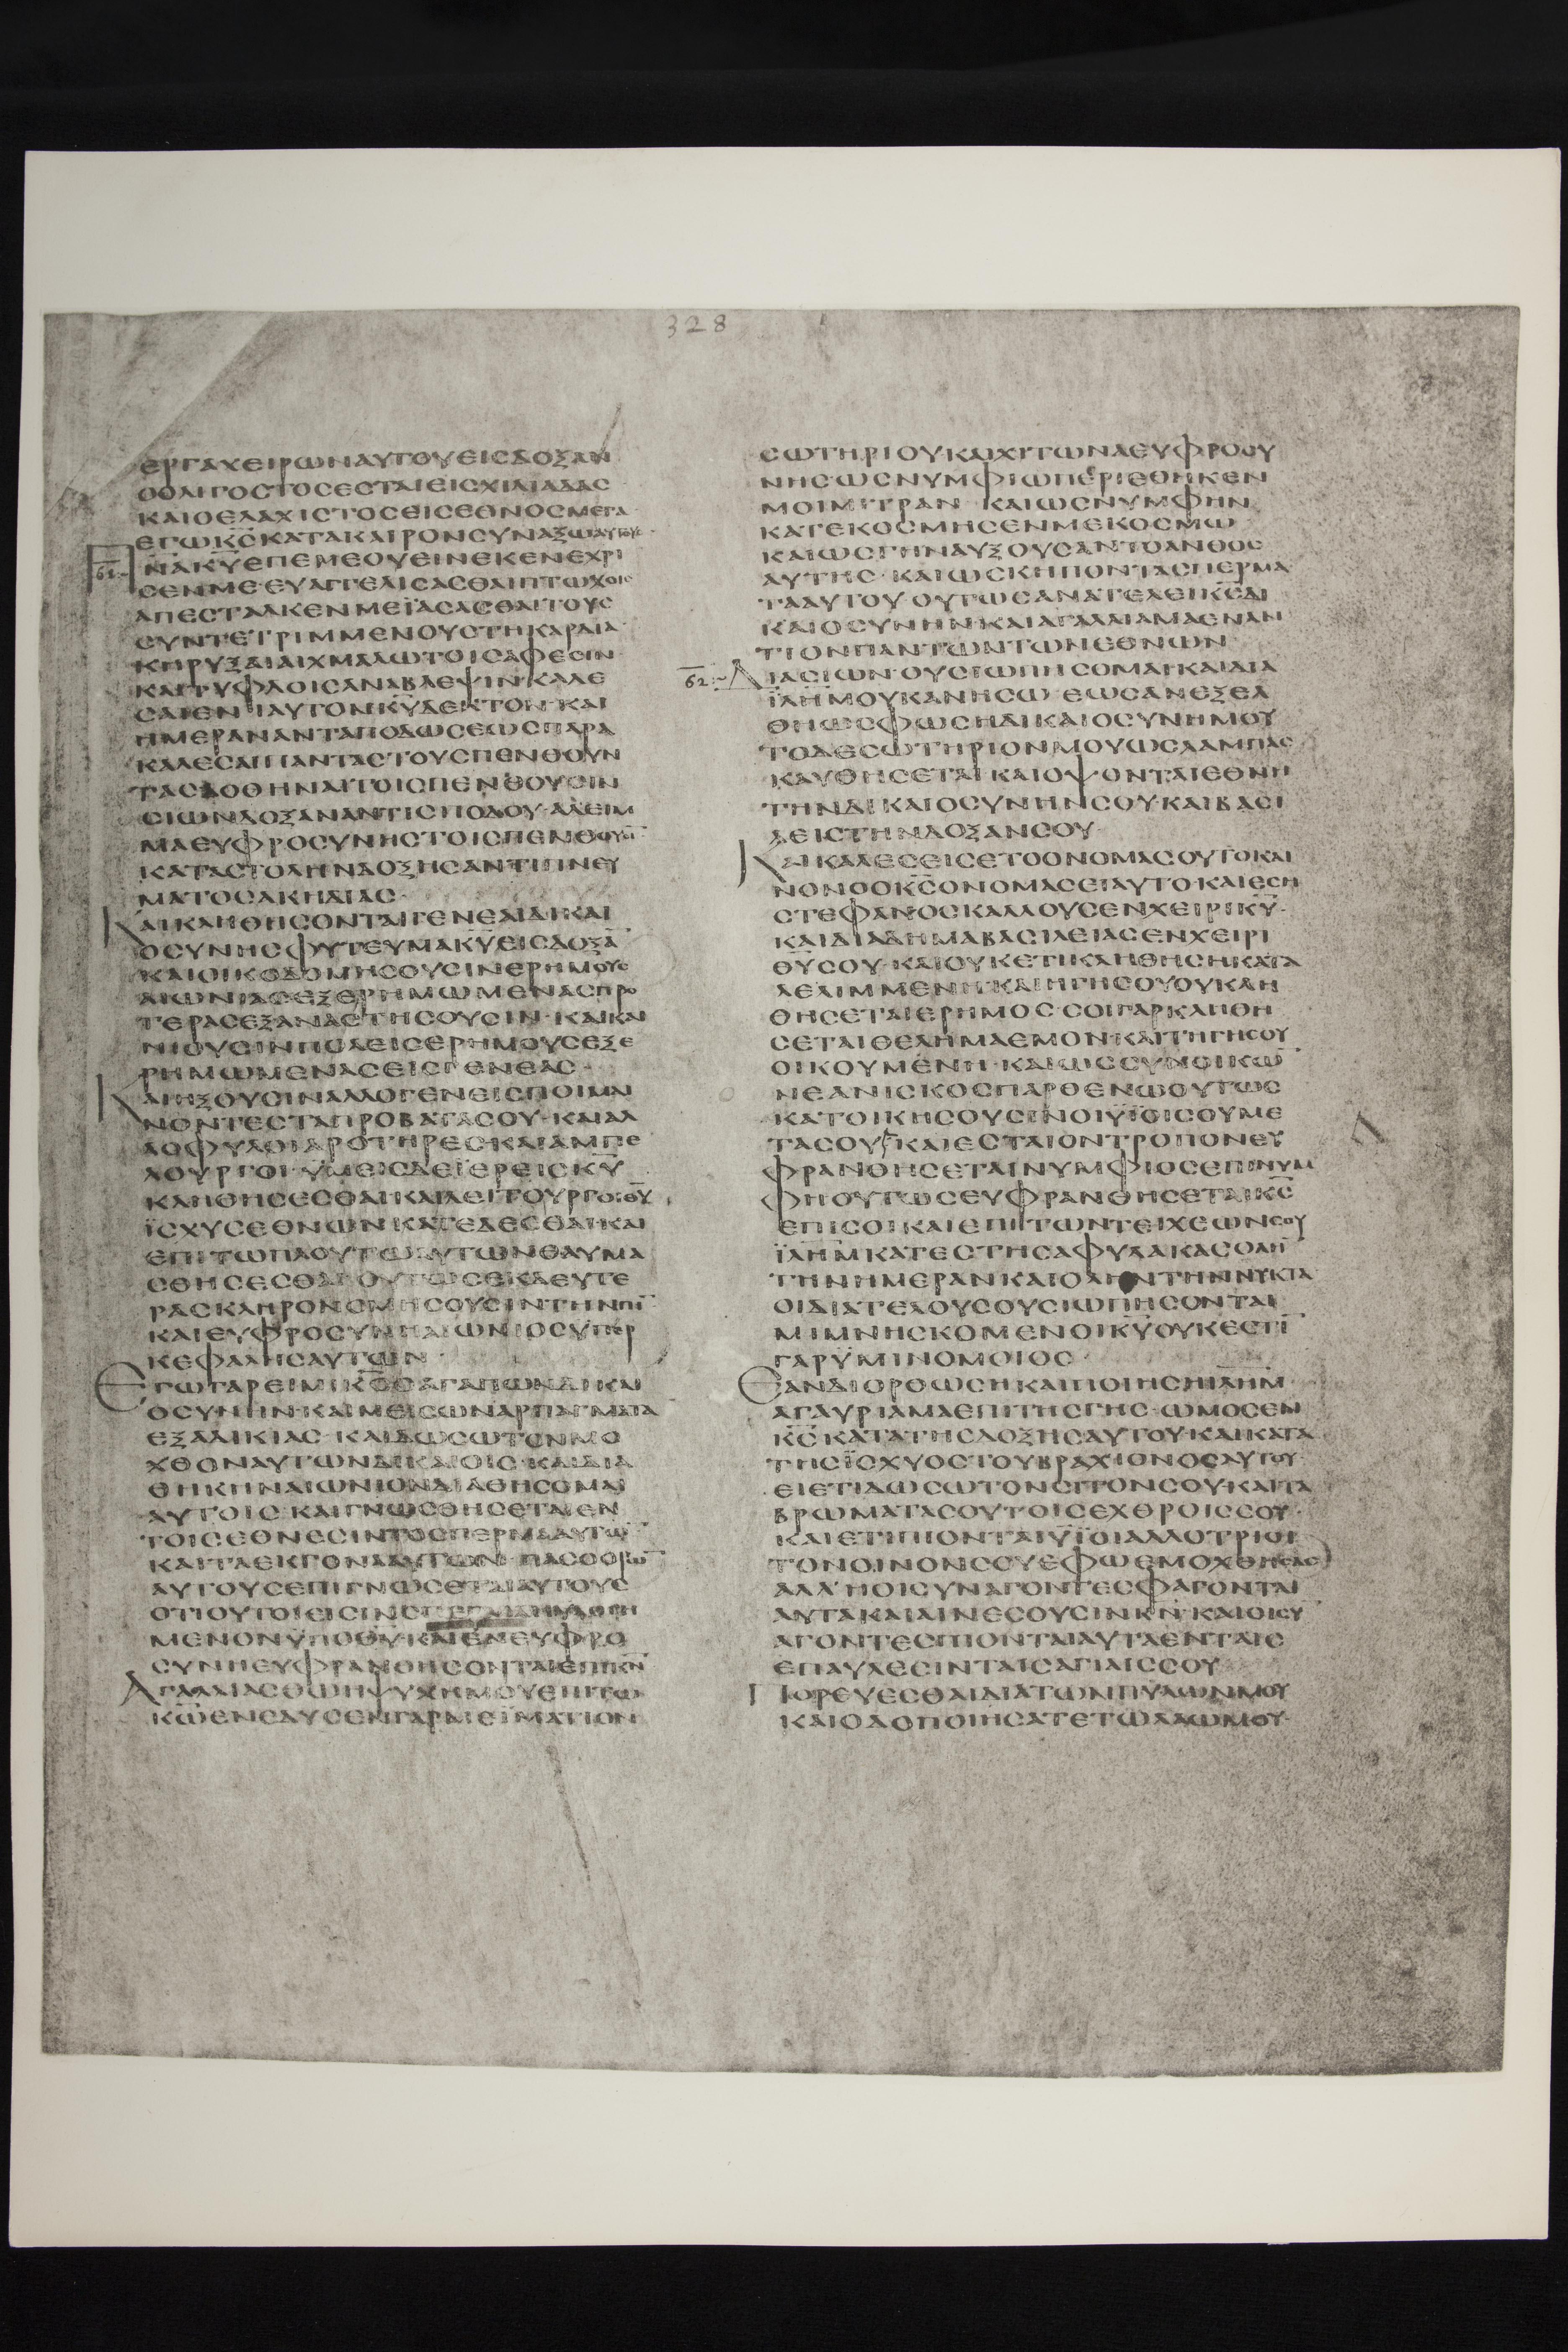 328
ΕΡΓΑΧΕΙΡΩΝΑΥΤΟΥΕΙCΔΟΞΑΝ
ΟΟΛΙΓΟCΤΟCΕCΤΑΙΕΙCΧΙΛΙΑΔΑC
ΚΑΙΟΕΛΑΧΙCΤΟCΕΙCΕΘΝΟCΜΕΓΑ
ΕΓΩΚCΚΑΤΑΚΑΙΡΟΝCΥΝΑΞΩΑΥΤΟΥC
61 ΠΝΑΚΥΕΠΕΜΕΟΥΕΙΝΕΚΕΝΕΧΡΙ
CΕΝΜΕ·ΕΥΑΓΓΕΛΙCΑCΘΑΙΠΤΩΧΟΙC
ΑΠΕCΤΑΛΚΕΝΜΕΪΑCΑCΘΑΙΤΟΥC
CΥΝΤΕΤΡΙΜΜΕΝΟΥCΤΗΚΑΡΔΙΑ
ΚΗΡΥΞΑΙΑΙΧΜΑΛΩΤΟΙCΑΦΕCΙΝ·
ΚΑΙΤΥΦΛΟΙCΑΝΑΒΛΕΨΙΝ·ΚΑΛΕ
CΑΙΕΝΙΑΥΤΟΝΚΥΔΕΚΤΟΝ·ΚΑΙ
ΗΜΕΡΑΝΑΝΤΑΠΟΔΩCΕΩCΠΑΡΑ
ΚΑΛΕCΑΙΠΑΝΤΑCΤΟΥCΠΕΝΘΟΥΝ
ΤΑCΔΟΘΗΝΑΙΤΟΙCΠΕΝΘΟΥCΙΝ
CΙΩΝΔΟΞΑΝΑΝΤΙCΠΟΔΟΥ·ΑΛΕΙΜ
ΜΑΕΥΦΡΟCΥΝΗCΤΟΙCΠΕΝΘΟΥCΙ
ΚΑΤΑCΤΟΛΗΝΔΟΞΗCΑΝΤΙΠΝΕΥ
ΜΑΤΟCΑΚΗΔΙΑC·
ΚΑΙΚΛΗΘΗCΟΝΤΑΙΓΕΝΕΑΙΔΙΚΑΙ
ΟCΥΝΗCΦΥΤΕΥΜΑΚΥΕΙCΔΟΞΑ
ΚΑΙΟΙΚΟΔΟΜΗCΟΥCΙΝΕΡΗΜΟΥC
ΑΙΩΝΙΑCΕΞΕΡΗΜΩΜΕΝΑCΠΡΟ
ΤΕΡΑCΕΞΑΝΑCΤΗCΟΥCΙΝ·ΚΑΙΚΑΙ
ΝΙΟΥCΙΝΠΟΛΕΙCΕΡΗΜΟΥCΕΞΕ
ΡΗΜΩΜΕΝΑCΕΙCΓΕΝΕΑC·
ΚΑΙΗΞΟΥCΙΝΑΛΛΟΓΕΝΕΙCΠΟΙΜΑΙ
ΝΟΝΤΕCΤΑΠΡΟΒΑΤΑCΟΥ·ΚΑΙΑΛ
ΛΟΦΥΛΟΙΑΡΟΤΗΡΕCΚΑΙΑΜΠΕ
ΛΟΥΡΓΟΙ·ΫΜΕΙCΔΕΪΕΡΕΙCΚΥ
ΚΛΗΘΗCΕCΘΑΙΚΑΙΛΕΙΤΟΥΡΓΟΙΘΥ
ΪCΧΥCΕΘΝΩΝΚΑΤΕΔΕCΘΑΙΚΑΙ
ΕΠΙΤΩΠΛΟΥΤΩΑΥΤΩΝΘΑΥΜΑ
CΘΗCΕCΘΑΙΟΥΤΩCΕΚΔΕΥΤΕ
ΡΑCΚΛΗΡΟΝΟΜΗCΟΥCΙΝΤΗΝΓΗ
ΚΑΙΕΥΦΡΟCΥΝΗΑΙΩΝΙΟCΥΠΕΡ
ΚΕΦΑΛΗCΑΥΤΩΝ
ΕΓΩΓΑΡΕΙΜΙΚCΟΑΓΑΠΩΝΔΙΚΑΙ
ΟCΥΝΗΝ·ΚΑΙΜΕΙCΩΝΑΡΠΑΓΜΑΤΑ
ΕΞΑΔΙΚΙΑC·ΚΑΙΔΩCΩΤΟΝΜΟ
ΧΘΟΝΑΥΤΩΝΔΙΚΑΙΟΙC·ΚΑΙΔΙΑ
ΘΗΚΗΝΑΙΩΝΙΟΝΔΙΑΘΗCΟΜΑΙ
ΑΥΤΟΙC·ΚΑΙΓΝΩCΘΗCΕΤΑΙΕΝ
ΤΟΙCΕΘΝΕCΙΝΤΟCΠΕΡΜΑΑΥΤΩ
ΚΑΙΤΑΕΚΓΟΝΑΑΥΤΩΝ·ΠΑCΟΟΡΩ
ΑΥΤΟΥCΕΠΙΓΝΩCΕΤΑΙΑΥΤΟΥC
ΟΤΙΟΥΤΟΙΕΙCΙΝCΠΕΡΜΑΗΥΛΟΓΗ
ΜΕΝΟΝΫΠΟΘΥ·ΚΑΙΕΝΕΥΦΡΟ
CΥΝΗΕΥΦΡΑΝΘΗCΟΝΤΑΙΕΠΙΚΝ
ΑΓΑΛΛΙΑCΘΩΗΨΥΧΗΜΟΥΕΠΙΤΩ
ΚΩ·ΕΝΕΔΥCΕΝΓΑΡΜΕΪΜΑΤΙΟΝ
CΩΤΗΡΙΟΥΚΑΙΧΙΤΩΝΑΕΥΦΡΟCΥ
ΝΗCΩCΝΥΜΦΙΩΠΕΡΙΕΘΗΚΕΝ
ΜΟΙΜΙΤΡΑΝ ΚΑΙΩCΝΥΜΦΗΝ
ΚΑΤΕΚΟCΜΗCΕΝΜΕΚΟCΜΩ
ΚΑΙΩCΓΗΝΑΥΞΟΥCΑΝΤΟΑΝΘΟC
ΑΥΤΗC·ΚΑΙΩCΚΗΠΟΝΤΑCΠΕΡΜΑ
ΤΑΑΥΤΟΥ·ΟΥΤΩCΑΝΑΤΕΛΕΙΚCΔΙ
ΚΑΙΟCΥΝΗΝ·ΚΑΙΑΓΑΛΛΙΑΜΑΕΝΑΝ
ΤΙΟΝΠΑΝΤΩΝΤΩΝΕΘΝΩΝ·
62 ΔΙΑCΙΩΝ·ΟΥCΙΩΠΗCΟΜΑΙ·ΚΑΙΔΙΑ
ΪΛΗΜΟΥΚΑΝΗCΩ ΕΩCΑΝΕΞΕΛ
ΘΗΩCΦΩCΗΔΙΚΑΙΟCΥΝΗΜΟΥ
ΤΟΔΕCΩΤΗΡΙΟΝΜΟΥΩCΛΑΜΠΑC
ΚΑΥΘΗCΕΤΑΙ ΚΑΙΟΨΟΝΤΑΙΕΘΝΗ
ΤΗΝΔΙΚΑΙΟCΥΝΗΝCΟΥ·ΚΑΙΒΑCΙ
ΛΕΙCΤΗΝΔΟΞΑΝCΟΥ·
ΚΑΙΚΑΛΕCΕΙCΕΤΟΟΝΟΜΑCΟΥΤΟΚΑΙ
ΝΟΝΟΟΚCΟΝΟΜΑCΕΙΑΥΤΟ·ΚΑΙΕCΗ
CΤΕΦΑΝΟCΚΑΛΛΟΥCΕΝΧΕΙΡΙΚΥ·
ΚΑΙΔΙΑΔΗΜΑΒΑCΙΛΕΙΑCΕΝΧΕΙΡΙ
ΘΥCΟΥ·ΚΑΙΟΥΚΕΤΙΚΛΗΘΗCΗΚΑΤΑ
ΛΕΛΙΜΜΕΝΗ·ΚΑΙΗΓΗCΟΥΟΥΚΛΗ
ΘΗCΕΤΑΙΕΡΗΜΟC·CΟΙΓΑΡΚΛΗΘΗ
CΕΤΑΙΘΕΛΗΜΑΕΜΟΝ·ΚΑΙΤΗΓΗCΟΥ
ΟΙΚΟΥΜΕΝΗ·ΚΑΙΩCCΥΝΟΙΚΩ
ΝΕΑΝΙCΚΟCΠΑΡΘΕΝΩΟΥΤΩC
ΚΑΤΟΙΚΗCΟΥCΙΝΟΙΫΪΟΙCΟΥΜΕ
ΤΑCΟΥ·ΚΑΙΕCΤΑΙΟΝΤΡΟΠΟΝΕΥ
ΦΡΑΝΘΗCΕΤΑΙΝΥΜΦΙΟCΕΠΙΝΥΜ
ΦΗΟΥΤΩCΕΥΦΡΑΝΘΗCΕΤΑΙΚC
ΕΠΙCΟΙΚΑΙΕΠΙΤΩΝΤΕΙΧΕΩΝCΟΥ
ΪΛΗΜΚΑΤΕCΤΗCΑΦΥΛΑΚΑCΟΛΗ
ΤΗΝΗΜΕΡΑΝΚΑΙΟΛΗΝΤΗΝΝΥΚΤΑ
ΟΙΔΙΑΤΕΛΟΥCΟΥCΙΩΠΗCΟΝΤΑΙ
ΜΙΜΝΗCΚΟΜΕΝΟΙΚΥΟΥΚΕCΤΙ
ΓΑΡΫΜΙΝΟΜΟΙΟC
ΕΑΝΔΙΟΡΘΩCΗΚΑΙΠΟΙΗCΗΙΛΗΜ
ΑΓΑΥΡΙΑΜΑΕΠΙΤΗCΓΗC·ΩΜΟCΕΝ
ΚCΚΑΤΑΤΗCΔΟΞΗCΑΥΤΟΥ·ΚΑΙΚΑΤΑ
ΤΗCΪCΧΥΟCΤΟΥΒΡΑΧΙΟΝΟCΑΥΤΟΥ
ΕΙΕΤΙΔΩCΩΤΟΝCΙΤΟΝCΟΥ·ΚΑΙΤΑ
ΒΡΩΜΑΤΑCΟΥΤΟΙCΕΧΘΡΟΙCCΟΥ·
ΚΑΙΕΤΙΠΙΟΝΤΑΙΫΪΟΙΑΛΛΟΤΡΙΟΙ
ΤΟΝΟΙΝΟΝCΟΥΕΦΩΕΜΟΧΘΗCΑC
ΑΛΛΗΟΙCΥΝΑΓΟΝΤΕCΦΑΓΟΝΤΑΙ
ΑΥΤΑΚΑΙΑΙΝΕCΟΥCΙΝΚΝ·ΚΑΙΟΙCΥ
ΑΓΟΝΤΕCΠΙΟΝΤΑΙΑΥΤΑΕΝΤΑΙC
ΕΠΑΥΛΕCΙΝΤΑΙCΑΓΙΑΙCCΟΥ
ΠΟΡΕΥΕCΘΑΙΔΙΑΤΩΝΠΥΛΩΝΜΟΥ
ΚΑΙΟΔΟΠΟΙΗCΑΤΕΤΩΛΑΩΜΟΥ·